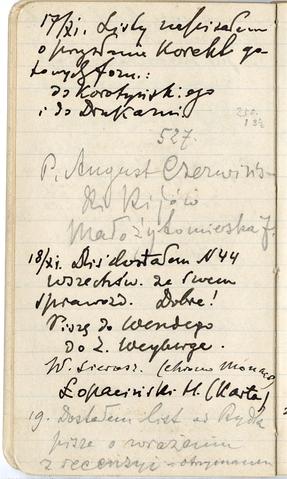 17/XI. Listy napisałem
o przysłanie korekt go-
towych form.:
do Korotyńskiego
i do Drukarni
250.
527.
P. August Czerwińs-
ki Kijów
Małożytomierska 7.
18/XI. Dziś dostałem N 44
wszechśw. ze swem
sprawozd. Dobre!
Piszę do Wendego
do Z. Weyberga.
W. Sierosz. (chromo Monaco)
Łopaciński H. (Karta)
19. Dostałem list od Rydla
pisze o wrażeniu
z recenzyi - otrzymanem